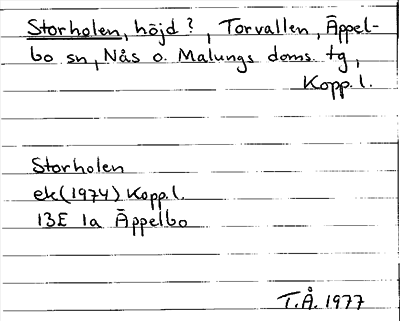 Storholen, höjd?, Torvallen, Äppel-
bo sn, Nås o. Malungs doms. tg,
Kopp. l.
Storholen
ek (1974) Kopp. l.
13E 1a Äppelbo
T.Å. 1977